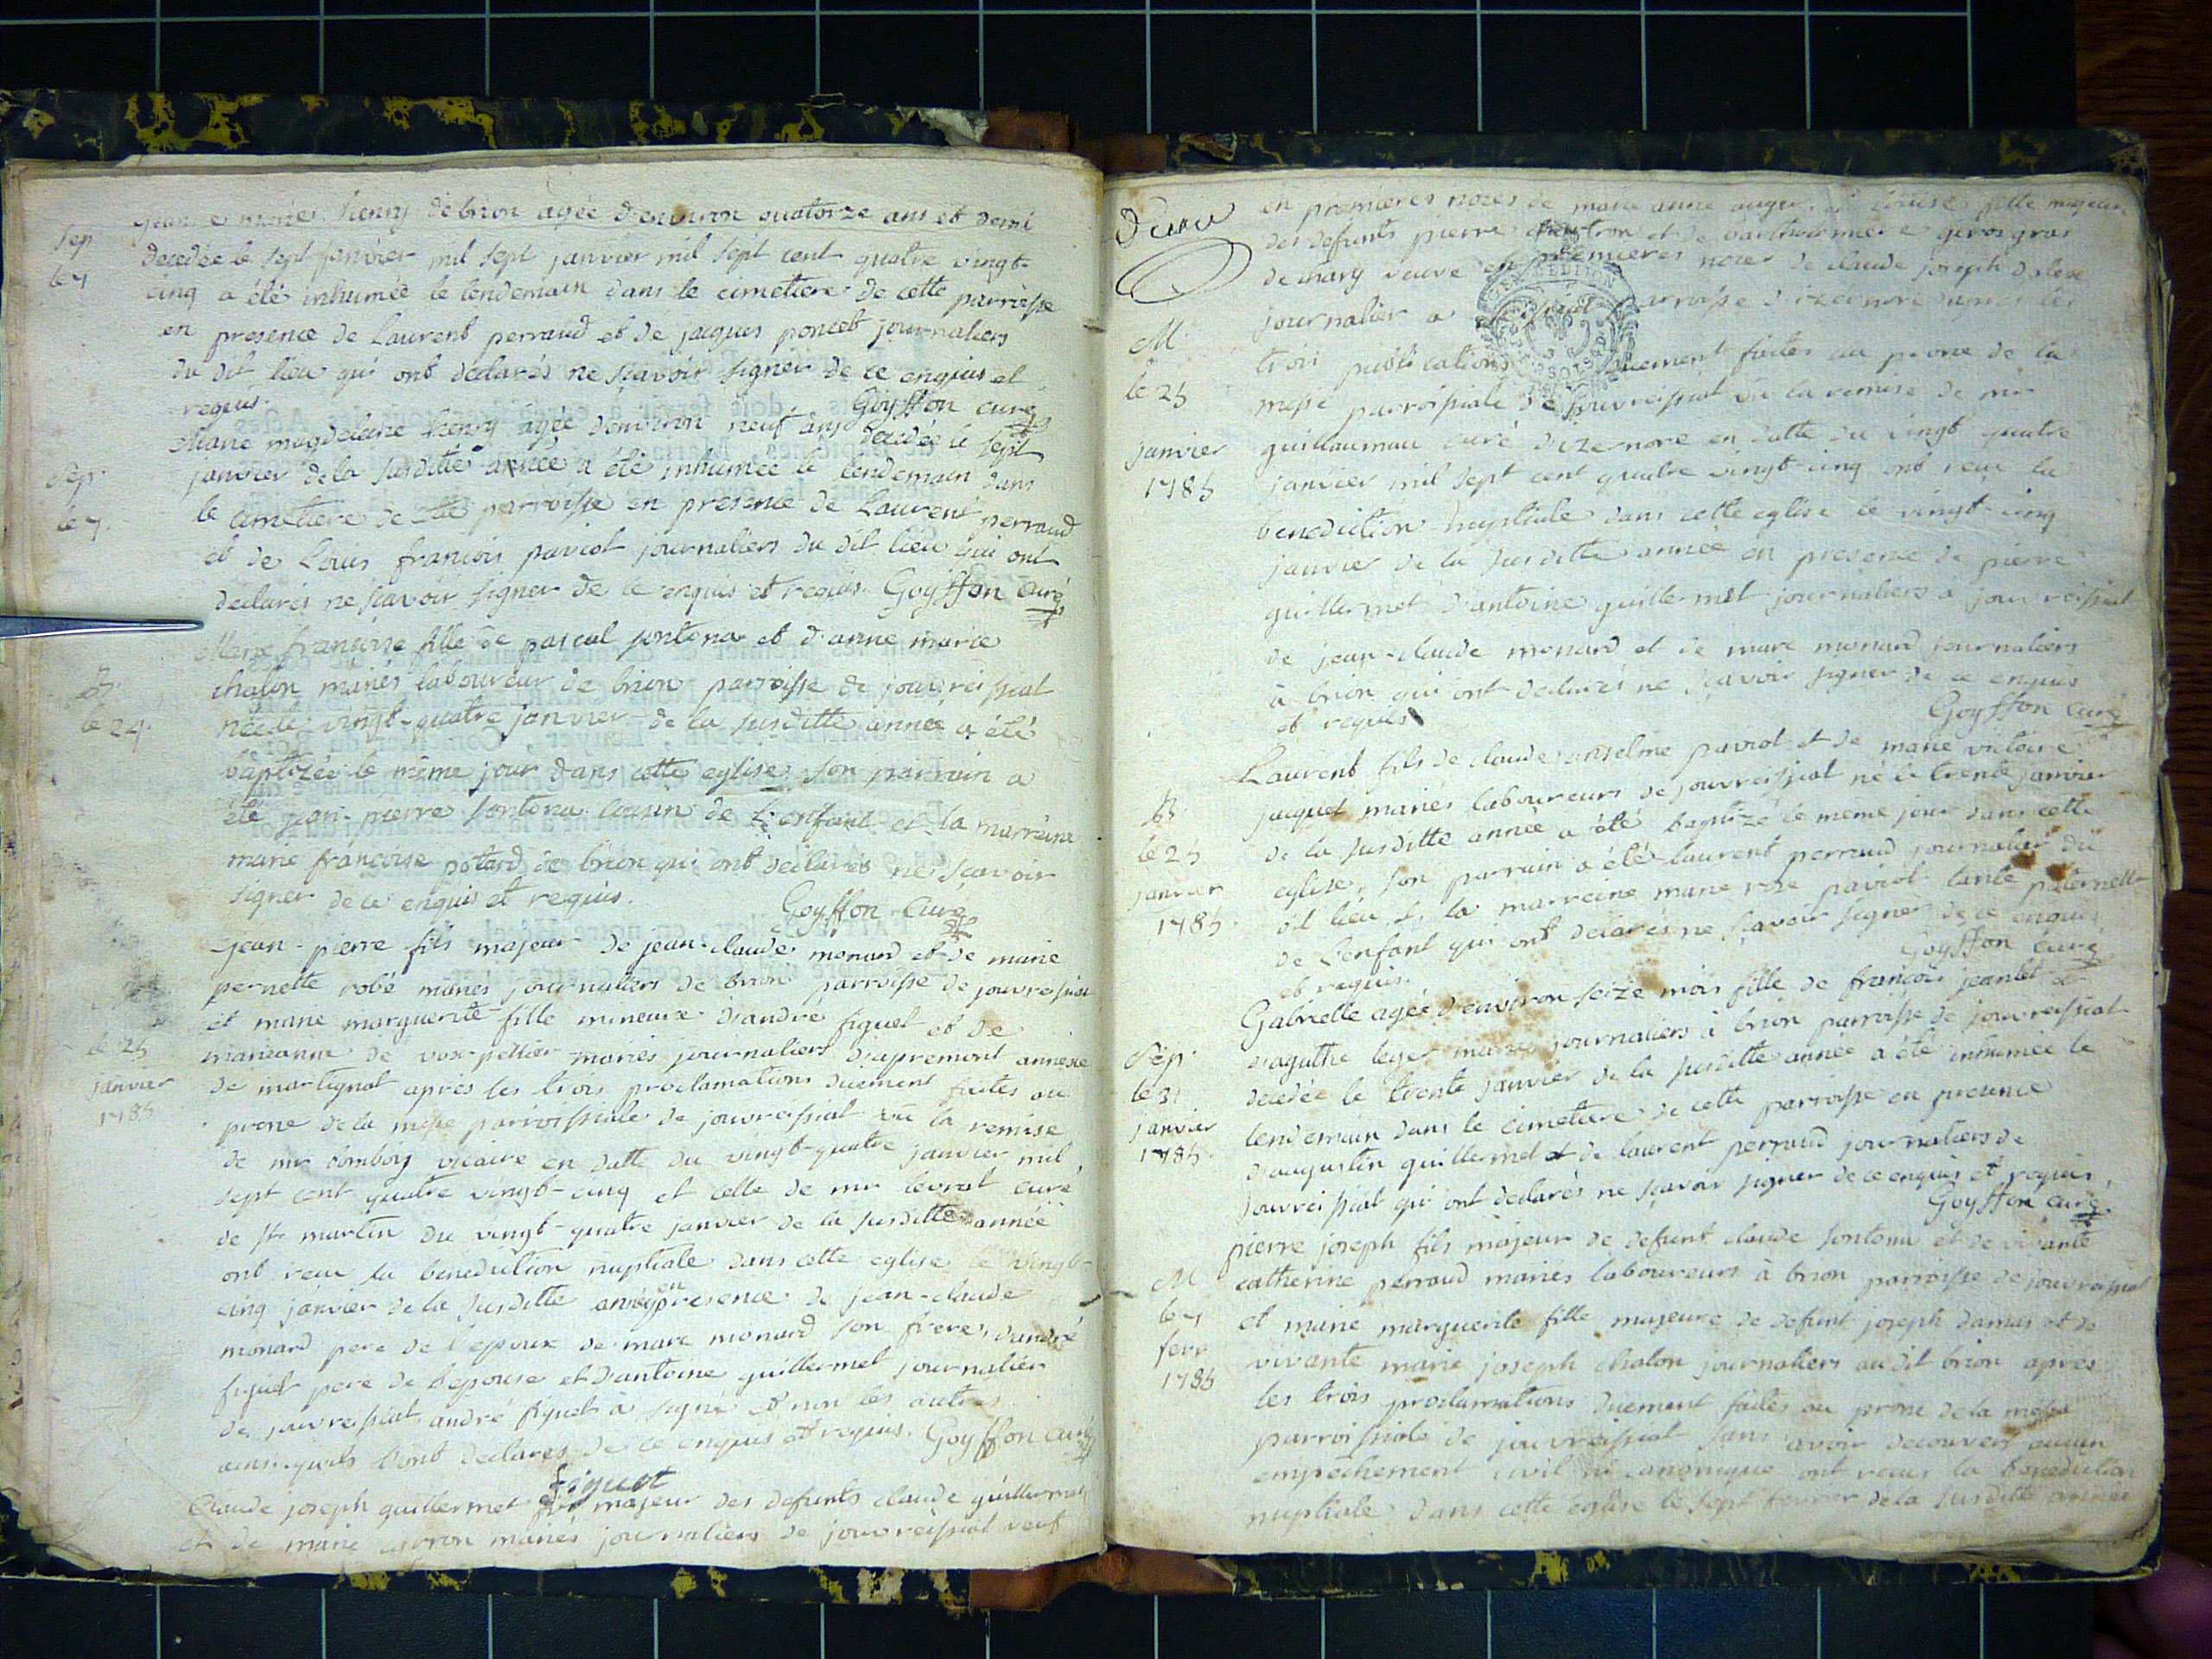 jeanne marie henry de brion agée d'environ quatorze ans et demi
Sep
le 7
decedée le sept janvier mil sept janvier mil sept cent quatre vingt-
cinq a été inhumée le lendemain dans le cimetiere de cette parroisse
en presence de Laurent perraud et de jacques poncet journaliers
du dit lieu qui ont déclarés ne sçavoir signer de ce enquis et
requis. Goyffon curé
Sep.
le 7.
Marie magdeleine henry agée d'environ neuf ans decedée le sept
janvier de la susditte année a été inhumée le lendemain dans
le cimetiere de cette parroisse en presence de Laurent perraud
et de Louis francois paviot journaliers du dit lieu qui ont
declarés ne sçavoir signer de ce enquis et requis. Goyffon curé
B.
le 24.
Marie françoise fille de pascal sontona et d'anne marie
chalon mariés laboureur de brion parroisse de jouvreissiat
née le vingt-quatre janvier de la susditte année a été
baptizée le même jour dans cette eglise, son parrain a
été jean-pierre sontona cousin de l'enfant et la marreine
marie françoise potard de brion qui ont declarés ne sçavoir
signer de ce enquis et requis.
Goyffon Curé
jean-pierre fils majeur de jean-claude monard et de marie
pernette robé mariés journaliers de brion parroisse de jouvreissiat
et marie marguerite fille mineure d'andré figuet et de
le 25
janvier
1785
marieanne de vaux-pettier mariés journaliers d'apremont annexe
de martignat apres les trois proclamations duement faites au
prone de la messe parroissiale de jouvreissiat vu la remise
de mr vicaire en datte du vingt-quatre janvier mil
sept cent quatre vingt-cinq et celle de mr levrat curé
de st martin du vingt-quatre janvier de la susditte année
ont recu la benediction nuptiale dans cette eglise le vingt-
cinq janvier de la susditte année en presence de jean-claude
monard pere de l'epoux de marc monard son frere, d'andré
figuet pere de l'epouse et d'antoine guillermet journalier
de jouvreissiat andré figuet à signé et non les autres
ainsi quils l'ont declarés de ce enquis et requis. Goyffon curé
figuet
Claude joseph guillermet fils majeur des defunts claude guillermet
et de marie carron mariés journaliers de jouvreissiat veuf
en premieres noces de marie anne auger, et Louise fille majeure
des defunts pierre et de barthelemie gros gras
de veuve en premieres noces de claude joseph
M.
le 25
janvier
1785
journalier a parroisse d'izernore apres les
trois publications duement faites au prone de la
messe parroissiale de jouvreissiat vu la remise de mr
guillaumau curé d'izernore en datte du vingt quatre
janvier mil sept cent quatre vingt-cinq ont recu la
benediction nuptiale dans cette eglise le vingt-cinq
janvier de la susditte année en presence de pierre
guillermet d'antoine guillermet journaliers à jouvreissiat
de jean-claude monard et de marc monard journaliers
à brion qui ont declarés ne sçavoir signer de ce enquis
et requis
Goyffon curé
B.
le 25
janvier
1785.
Laurent fils de claude anselme paviot et de marie victoire
jaquet mariés laboureurs de jouvreissiat né le trente janvier
de la susditte année a été baptizé le meme jour dans cette
eglise, son parrain a été laurent perraud journalier du
dit lieu et la marreine marie rose paviot tante paternelle
de l'enfant qui ont declarés ne sçavoir signer de ce enquis
et requis.
Goyffon Curé
Sep.
le 31
janvier
1785.
Gabrielle agée d'environ seize mois fille de françois jeantet et
d'agathe leger mariés journaliers à brion parroisse de jouvreissiat
decedée le trente janvier de la susditte année a été inhumée le
lendemain dans le cimetiere de cette parroisse en presence
d'augustin guillermet et de laurent perraud journaliers de
jouvreissiat qui ont declarés ne sçavoir signer de ce enquis et requis,
Goyffon curé
M
le 7
fevr
1785
pierre joseph fils majeur de defunt claude sontona et de vivante
catherine perraud mariés laboureurs à brion parroisse de jouvreissiat
et marie marguerite fille majeure de defunt joseph damas et de
vivante marie joseph chalon journaliers au dit brion apres
les trois proclamations duement faites au prone de la messe
parroissiale de jouvreissiat sans avoir decouvert aucun
empechement civil ni canonique ont recus la benediction
nuptiale dans cette eglise le sept fevrier de la susditte année